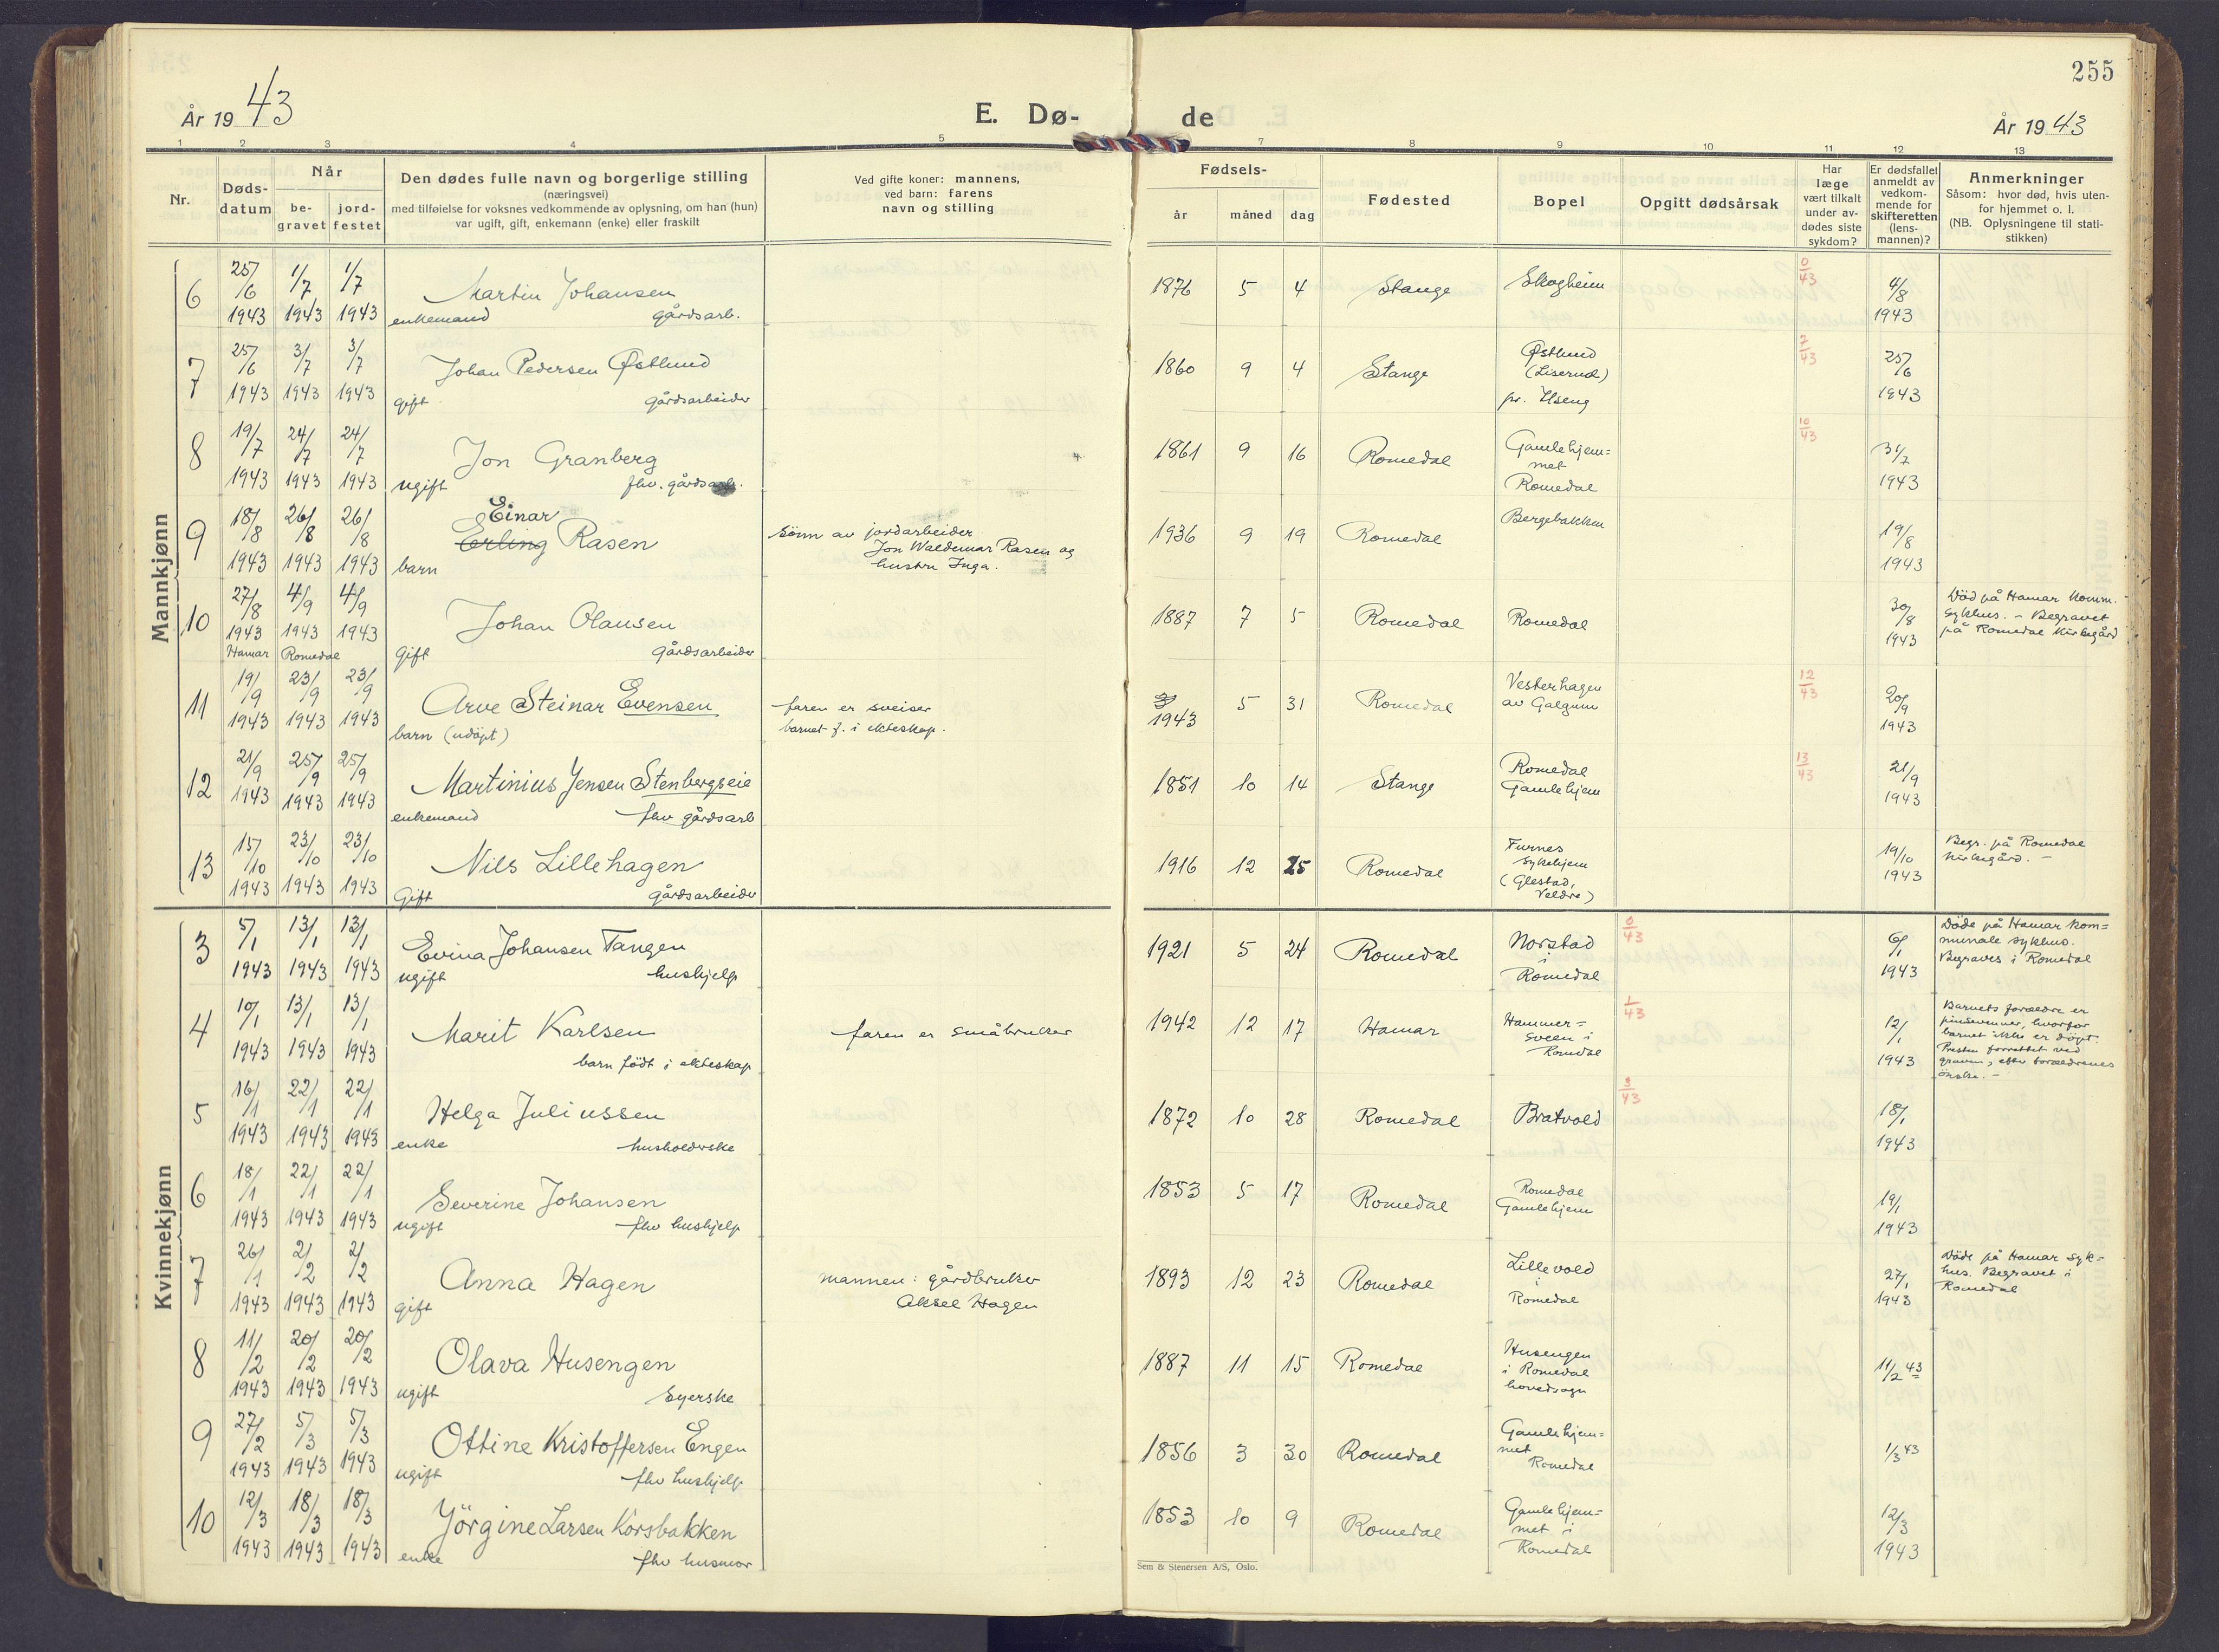 255
År 1943
E. Dø-
de
År 1943
1 2 3 4 5 7 8 9 10 11 12 13
Nr.
Døds-
datum
Når
be-
gravet
jord-
festet
Den dødes fulle navn og borgerlige stilling
(næringsvei)
med tilføielse for voksnes vedkommende av oplysning, om han (hun)
var ugift, gift, enkemann (enke) eller fraskilt
Ved gifte koner: mannens,
ved barn: farens
navn og stilling
Fødsels-
år måned dag
Fødested
Bopel
Opgitt dødsårsak
Har
læge
vært tilkalt
under av-
dødes siste
sykdom?
Er dødsfallet
anmeldt av
vedkom-
mende for
skifteretten
(lens-
mannen)?
Anmerkninger
Såsom: hvor død, hvis uten-
for hjemmet o. l.
(NB. Oplysningene til stati-
stikken)
Mannkjønn
6 25/6 1943 1/7 1943 1/7 1943 Martin Johansen
enkemand gårdsarb.
1876 5 4 Stange Skogheim 0/43 4/8 1943
7 25/6 1943 3/7 1943 3/7 1943 Johan Pedersen Østlund
gift gårdsarbeider
1860 9 4 Stange Østlund
(Liserud)
pr. Ilseng
7/43 25/6 1943
8 19/7 1943 24/7 1943 24/7 1943 Jon Granberg
ugift fhv. gårdsarb.
1861 9 16 Romedal Gamlehjem=
met
Romedal
10/43 31/7 1943
9 18/8 1943 26/8 1943 26/8 1943 Einar
Erling Rasen
barn
sønn av jordarbeider
Jon Waldemar Rasen og
hustru Inga.
1936 9 19 Romedal Bergebakken 19/8 1943
10 27/8 1943 4/9 1943 4/9 1943 Johan Olausen
Hamar Romedal gift gårdsarbeider
1887 7 5 Romedal Romedal 30/8 1943
Död på Hamar Komm.
sykhus. - Begravet
på Romedal kirkegård
11 19/9 1943 23/9 1943 23/9 1943 Arve Steinar Evensen
barn (udöpt)
faren er sveiser
barnet f. i ekteskap.
1943 5 31 Romedal Vesterhagen
av Galgum
12/43 20/9 1943
12 21/9 1943 25/9 1943 25/9 1943 Martinius Jensen Stenbergseie
enkemand fhv gårdsarb
1851 10 14 Stange Romedal
Gamlehjem
13/43 21/9 1943
13 15/10 1943 23/10 1943 23/10 1943 Nils Lillehagen
Gift gårdsarbeider
1916 12 25 Romedal Furnes
sykehjem
(Glestad,
Veldre)
19/10 1943
Begr. på Romedal
kirkegård. -
Kvinnekjønn
3 5/1 1943 13/1 1943 13/1 1943 Evina Johansen Tangen
ugift hushjelp
1921 5 24 Romedal Norstad
i
Romedal
0/43 6/1 1943
Döde på Hamar kom=
munale sykhus.
Begraves i Romedal
4 10/1 1943 13/1 1943 13/1 1943 Marit Karlsen
barn födt i ekteskap
faren er småbruker
1942 12 17 Hamar Hammer=
sveen i
Romedal
1/43 12/1 1943
Barnets forældre er
pinsevenner, hvorfor
barnet ikke er döpt.
Presten forrettet ved
graven, efter forældrenes
önske. -
5 16/1 1943 22/1 1943 22/1 1943 Helga Juliussen
enke husholderske
1872 10 28 Romedal Bratvold 3/43 18/1 1943
6 18/1 1943 22/1 1943 22/1 1943 Severine Johansen
ugift fhv hushjelp
1853 5 17 Romedal Romedal
Gamlehjem
19/1 1943
7 26/1 1943 2/2 1943 2/2 1943 Anna Hagen
gift
mannen: gårdbruker
Aksel Hagen
1893 12 23 Romedal Lillevold
i
Romedal
27/1 1943
Döde på Hamar syk=
hus. Begravet i
Romedal
8 11/2 1943 20/2 1943 20/2 1943 Olava Husengen
ugift Syerske
1887 11 15 Romedal Husengen
i Romedal
hovedsogn
11/2 43
9 27/2 1943 5/3 1943 5/3 1943 Ottine Kristoffersen Engen
ugift fhv hushjelp
1856 3 30 Romedal Gamlehjem=
met
Romedal
1/3 43
10 12/3 1943 18/3 1943 18/3 1943 Jörgine Larsen Korsbakken
enke fhv husmor
1853 10 9 Romedal Gamlehjem=
met i
Romedal
12/3 1943
Sem & Stenersen A/S, Oslo.